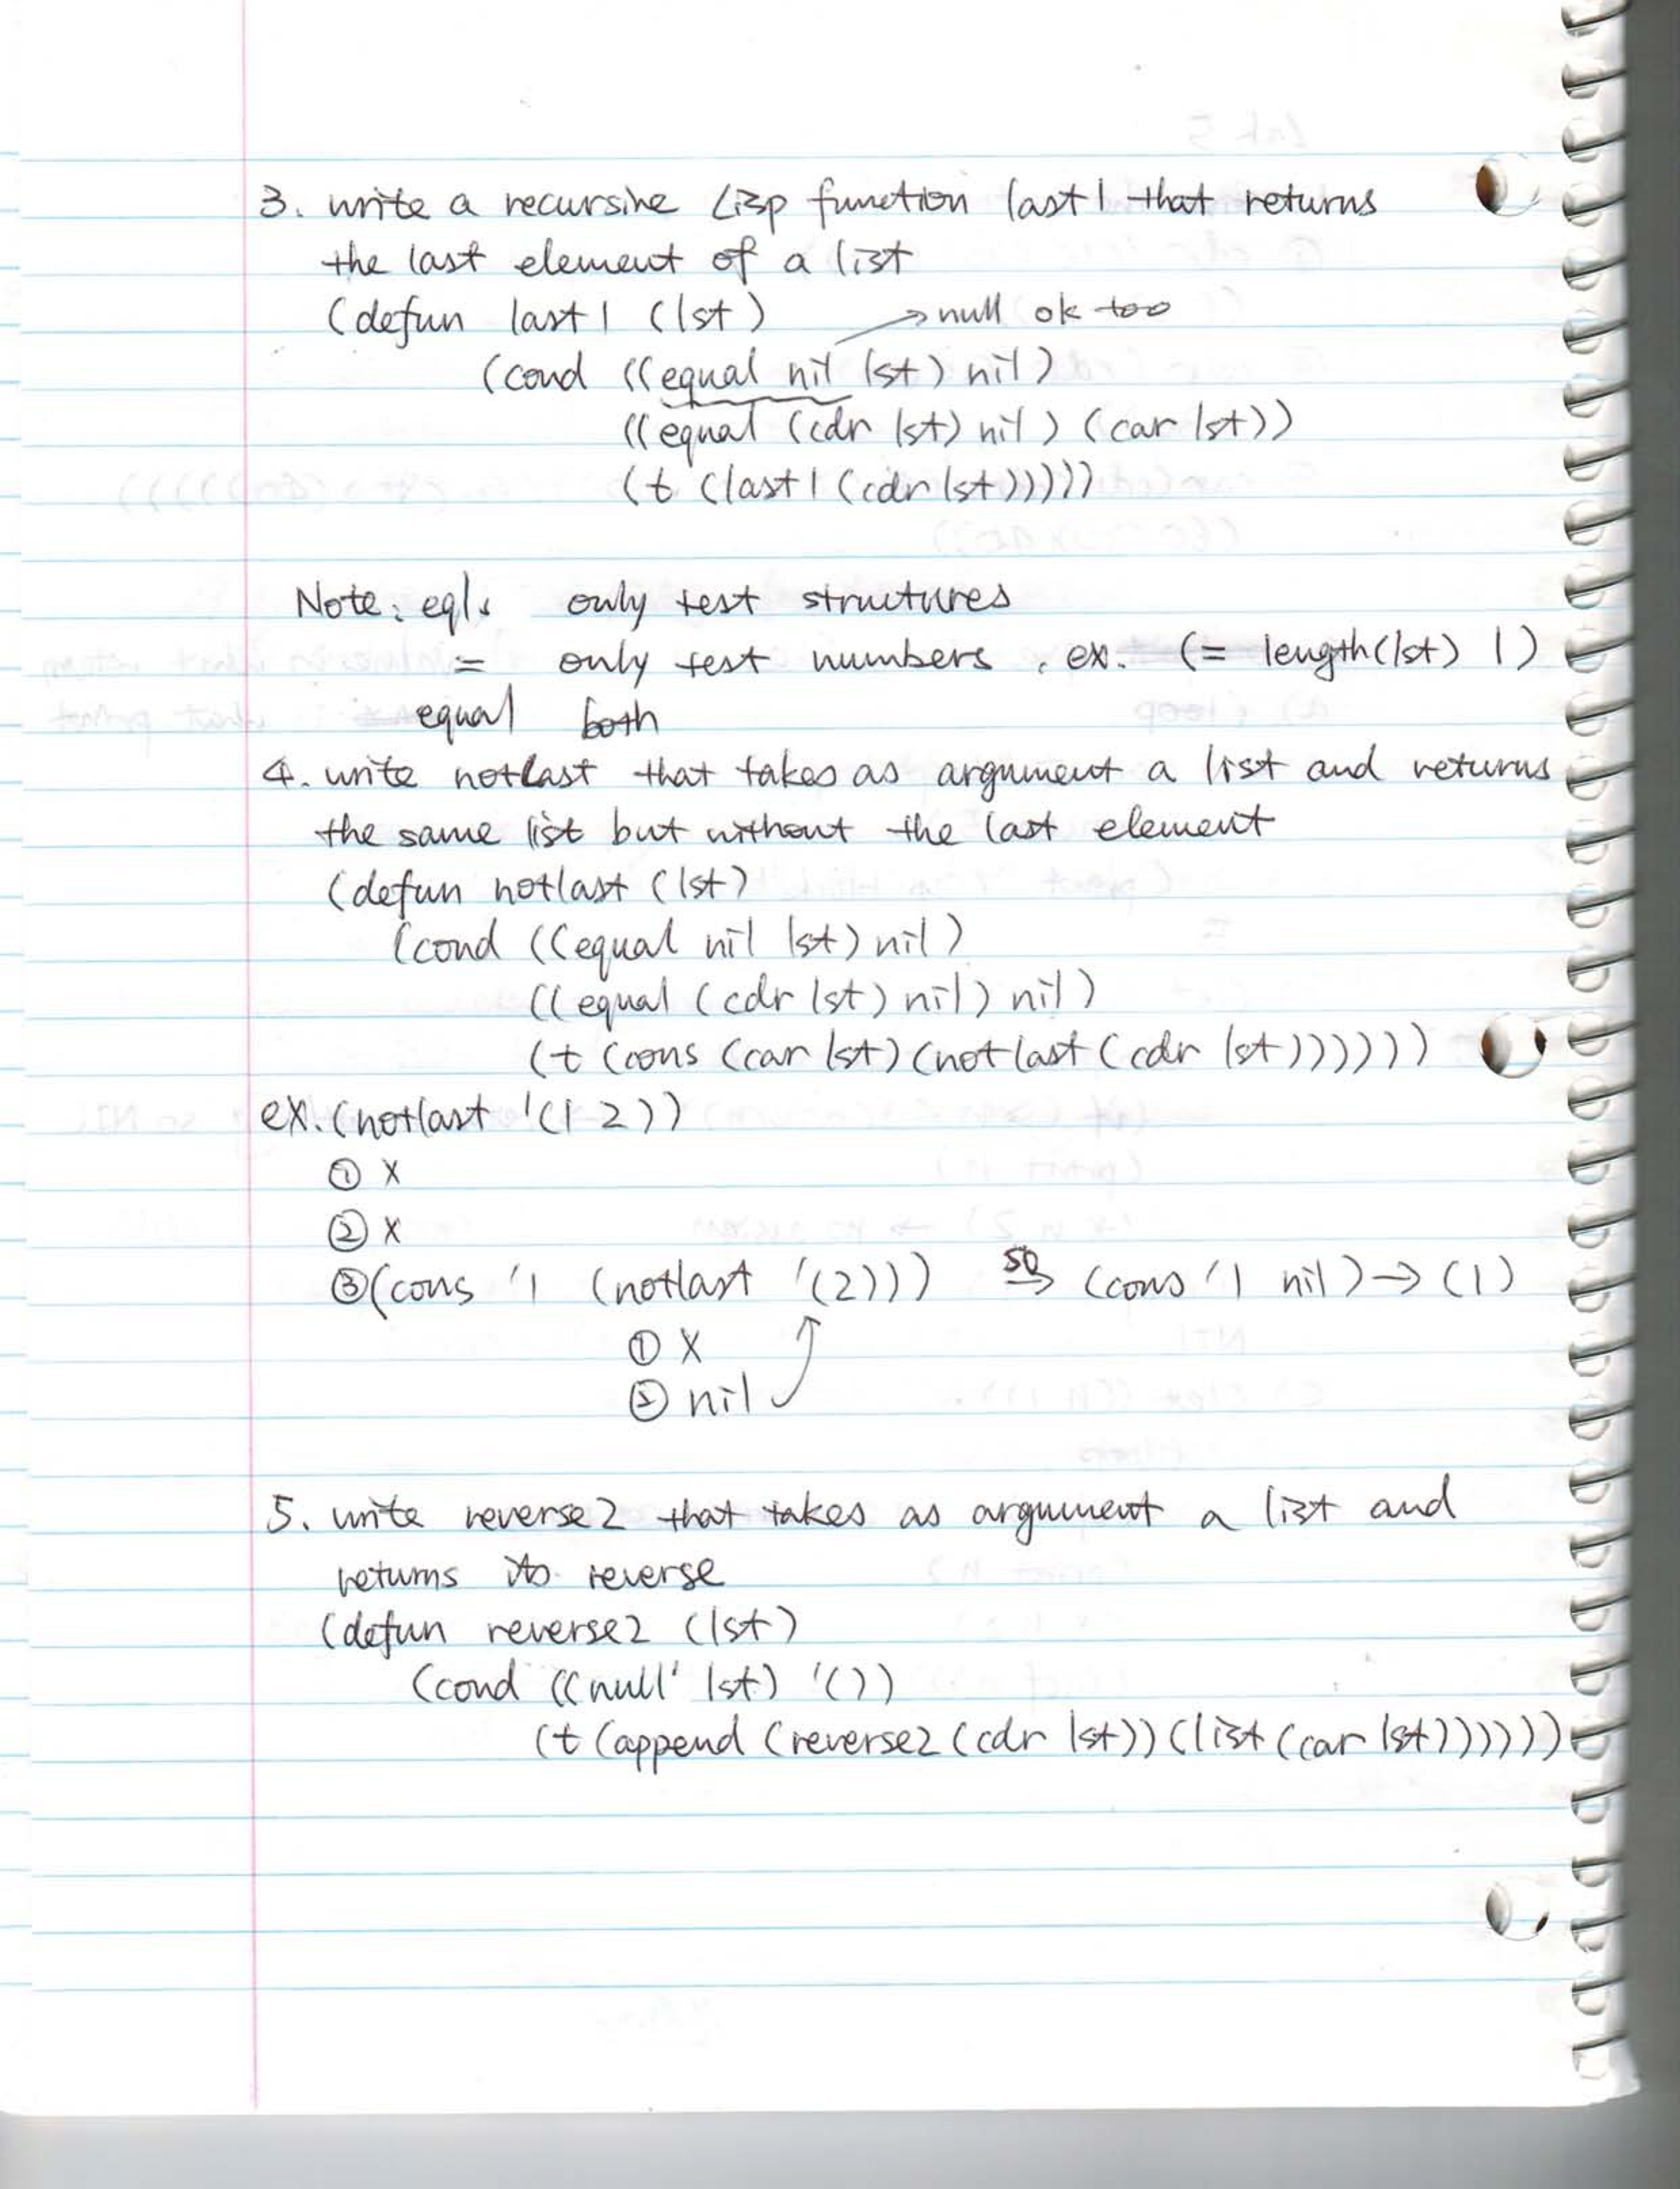 3. write a recursive Lisp function last1 that returns
the last element of a list
(defun last1 (lst)
→ null ok too
(cond ((equal nil lst) nil)
((equal (cdr lst) nil) (car lst))
(t (last1 (cdr lst)))))
Note: eql: only test structures
= only test numbers. ex. (= length(lst) 1)
equal both
4. write notlast that takes as argument a list and returns
the same list but without the last element
(defun notlast (lst)
(cond ((equal nil lst) nil)
((equal (cdr lst) nil) nil)
(t (cons (car lst) (notlast (cdr lst))))))
ex. (notlast '(1 2))
① x
② x
③ (cons '1 (notlast '(2))) so → (cons '1 nil) → (1)
① x
② nil
5. write reverse2 that takes as argument a list and
returns its reverse
(defun reverse2 (lst)
(cond ((null' lst) '())
(t (append (reverse2 (cdr lst)) (list (car lst))))))